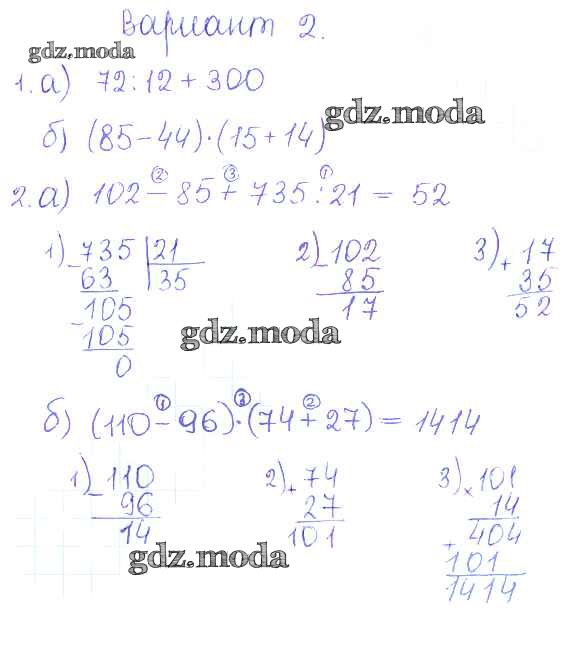 Вариант 2.
gdz.moda
1. а) 72:12+300
gdz.moda
б) (85-44)·(15+14)
② ③ ①
2. а) 102-85+735:21 = 52
1) 735 | 21 2) 102 3) 17
- 63 35 - 85 + 35
105 17 52
- 105
0
gdz.moda
① ③ ②
б) (110-96)·(74+27) = 1414
1) 110 2) 74 3) 101
- 96 + 27 × 14
14 101 404
+ 101
1414
gdz.moda